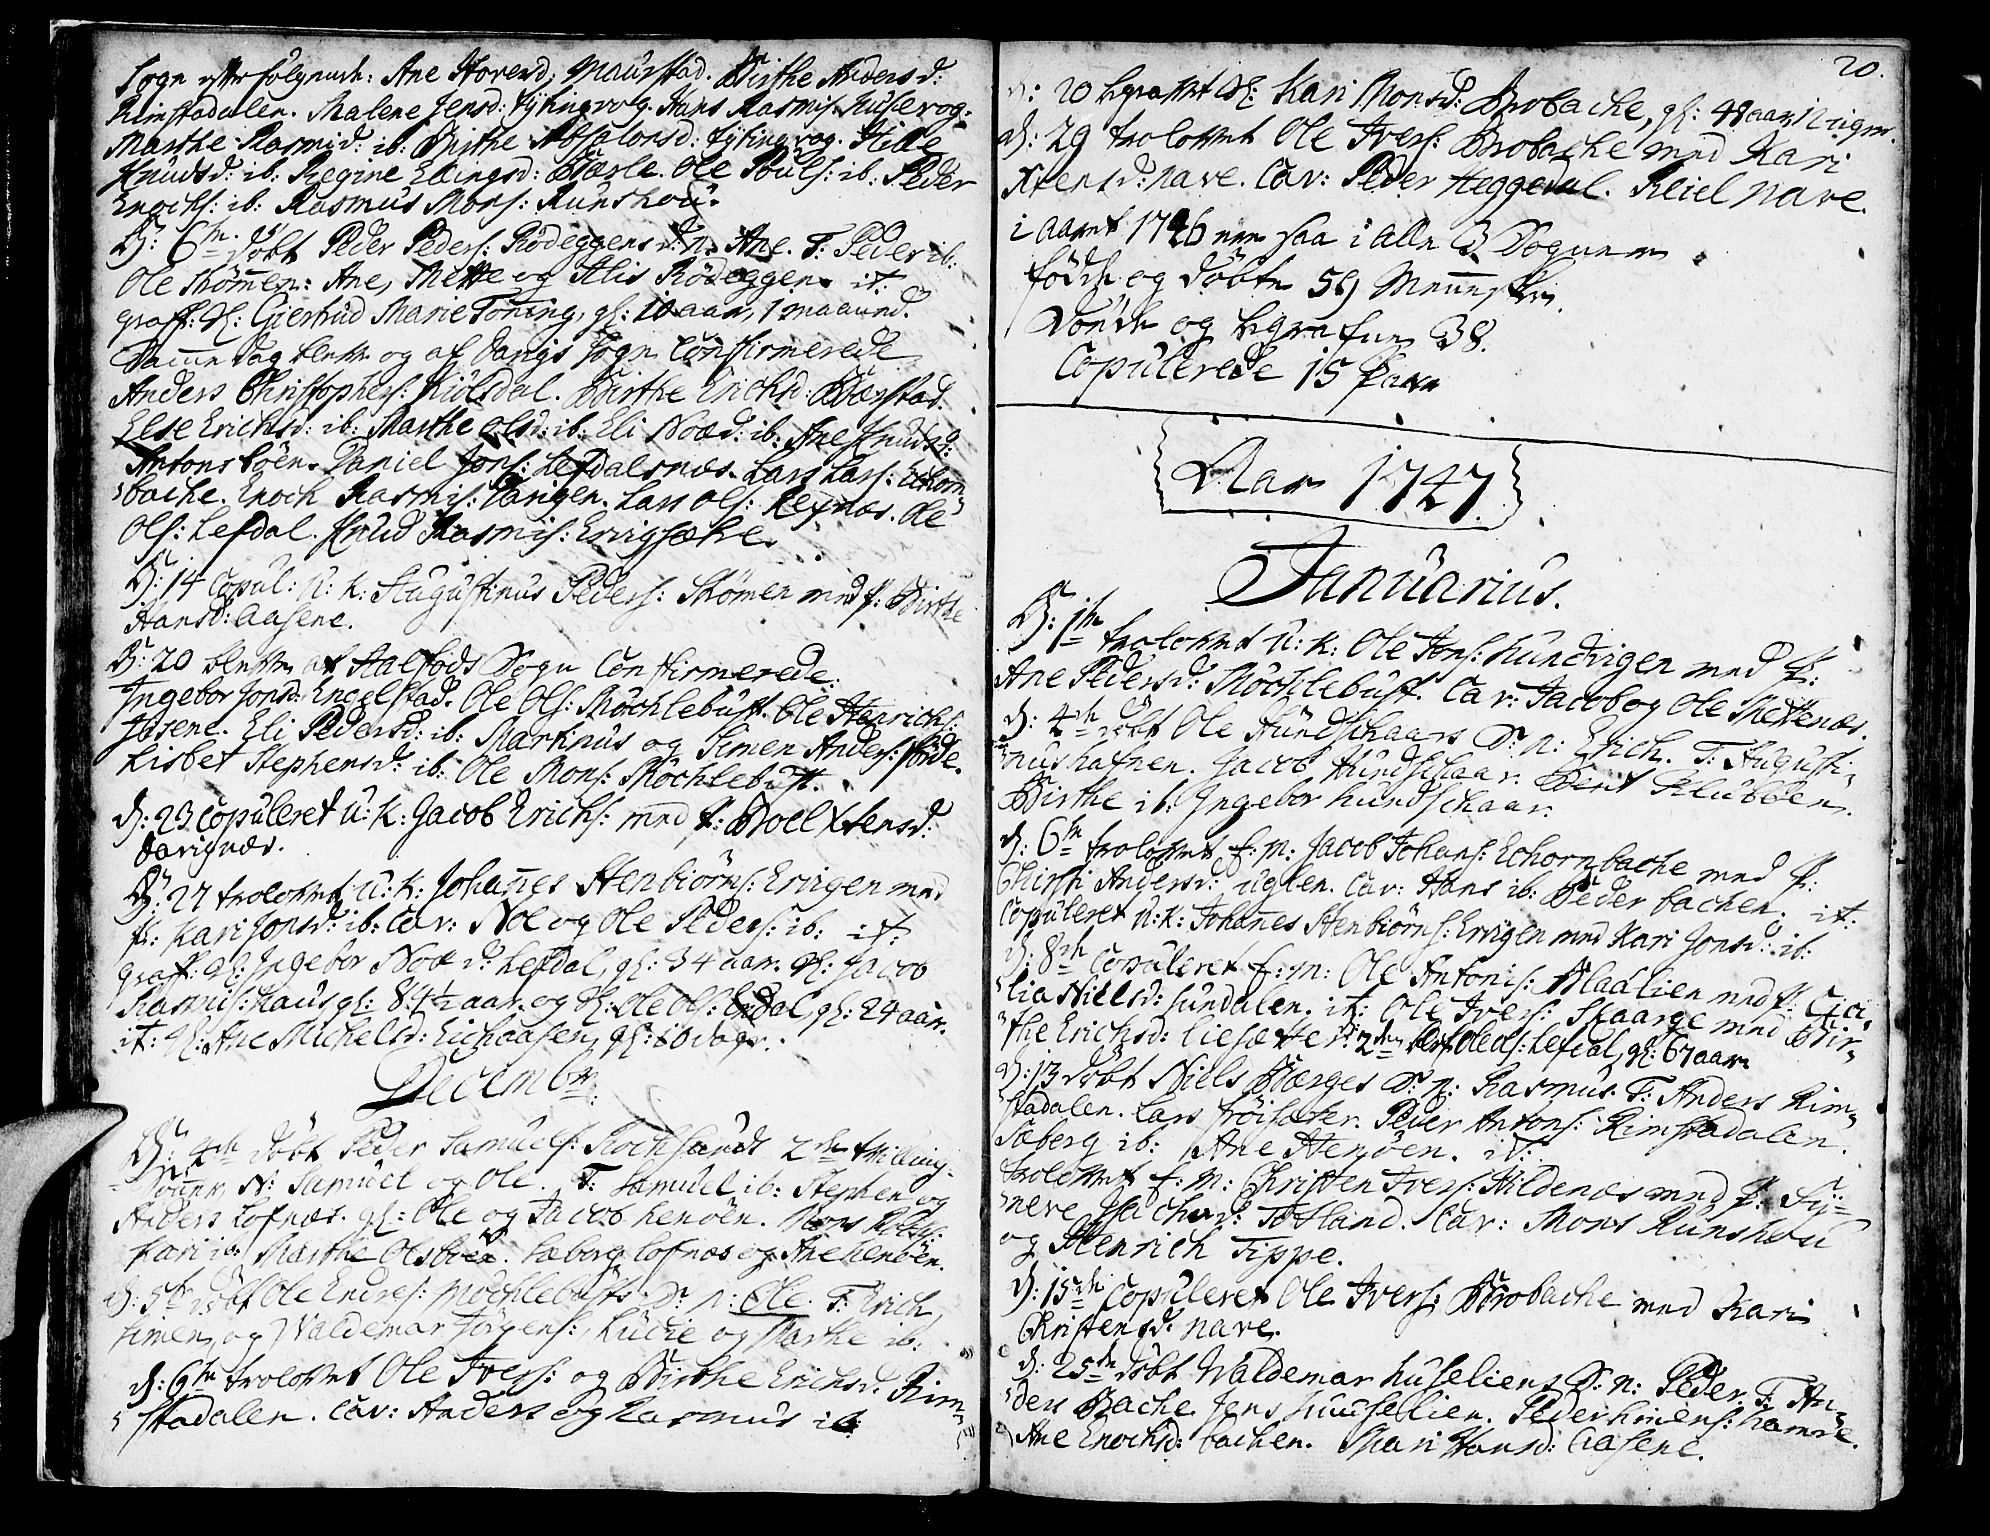 Sogn efterfølgende: Ane Hovensd: Maurstad. Birthe Andersd:
Rimstadalen. Malene Jensd: Tytingvog. Hans Rasmis: Huusevog.
Marthe Rasmisd: ib: Birthe Absalonsd: Tytingvog. Hilde
Knudsd: ib: Regine Ellingsd: Bærle. Ole Pouls: ib: Peder
Enochs: ib: Rasmus Mons: Runshou.
D: 6te døbt Peder Peders: Rødeggens d: n: Ane. T: Peder ib:
Ole Strømmen: Ane, Mette og Alis Rødeggen. it:
graff: Sl: Giertrud Marie Toning, gl: 10 aar, 1 maaned.
Samme dag blette og af Davigs Sogn Confirmerede
Anders Christophers: Kiølsdal. Birthe Erichsd: Bærstad.
Else Erichsd: ib: Marthe Olsd: ib: Eli Noæd: ib: Ane Knudsd:
Antonsbøen. Daniel Jons: Lefdalsnæs. Lars Lars: Echorn-
bache. Enoch Rasmis: Davigen. Lars Ols: Rexnæs. Ole
Ols: Lefdal. Knud Rasmis: Ervigsæhre.
D: 14 Copul: U: K: Augustinus Peders: Strømen med P: Birthe
Hansd: Aasene.
D: 20 blette af Stalfods Sogn Confirmerede:
Ingebor Jonsd: Engelstad. Ole Ols: Møchlebust. Ole Henrichs:
Josene. Eli Pedersd: ib: Marknus og Simen Anders: Førde.
Lisbet Stephensd: ib: Ole Mons: Møchlebust.
D: 23 Copuleret U: K: Jacob Erichs: med P: Boel Xtensd:
Davignæs.
D: 27 trolovet U: K: Johannes Stenbiørns: Ervigen med
P: Kari Jonsd: ib: Cav: Noe og Ole Peders: ib: it:
graff: Sl: Ingebor Noæ d: Lefdal, gl: 34 aar. Sl: Jacob
Rasmis: Haus gl: 84½ aar. og Sl: Ole Ols: Endal, gl: 24 aar.
it: Sl: Ane Michelsd: Eichaasen, gl: 10 dage.
Decembr:
D: 4de døbt Peder Samuels: Rochsunds 2de tvilling-
Sønner N: Samuel og Ole. T: Samuel ib: Stephen og
Anders Lofnæs. gl: Ole og Jacob Henøen. Mons
Kari ib: Marthe Olsbøe. Sæberg Lofnæs og Ane Henøen.
D: 5te døbt Ole Endres: Møchlebusts S: n: Ole. T: Erich,
Simen, og Waldemar Jørgens: Lucie og Marthe ib:
D: 6te trolovet Ole Ivers: og Birthe Erichsd: Rim-
stadalen. Cav: Anders og Rasmus ib:
20.
D: 20 begravet Sl: Kari Monsd: Brobache, gl: 48 aar 12 uger.
D: 29 trolovet Ole Ivers: Brobache med Kari
Xtensd: Nave. Cav: Peder Heggedal. Reiel Nave.
i Aaret 1746 ere saa i alle 3 Sogner
fødde og døbte 59 Mennesker.
Døede og begrafne 38.
Copulerede 15 Par
Aar 1747
Januarius.
D: 1te trolovet U: K: Ole Jons: Hundvigen med P:
Ane Pedersd: Møchlebust. Cav: Jacob og Ole Mettenæs.
D: 4de døbt Ole Hundschaars S: n: Erich. T: Augusti-
nus Hafnen. Jacob Hundschaar. Berit Klubben.
Birthe ib: Ingebor Hundschaar.
D: 6te trolovet E: M: Jacob Johans: Echornbache med P:
Christi Andersd: Uglen. Cav: Hans ib: Peder Bachen. it:
Copuleret U: K: Johannes Stenbiørns: Ervigen med Kari Jonsd: ib:
D: 8de Copuleret E: M: Ole Antonis: Maalien med P: Cici-
lia Nielsd: Sundalen. it: Ole Ivers: Skaarge med Bir-
the Erichsd: Liesæter. 2den begr: Ole Ols: Lefdal, gl: 67 aar.
D: 13 døbt Niels Bærges S: n: Rasmus. T: Anders Rim-
stadalen. Lars Frøisæter. Peder Antons: Rimstadalen.
Søberg ib: Ane Henøen. it:
trolovet E: M: Christen Ivers: Hildenæs med P: Sy-
nneve Isachsd: Totland. Cav: Mons Runshou
og Henrich Tippe.
D: 15de Copuleret Ole Ivers: Brobache med Kari
Christensd: Nave.
D: 25de døbt Waldemar Huseliens S: n: Peder. T: An-
ders Bache. Jens Huuselien. Peder Hinens: Hamre.
Ane Enochsd: Bachen. Mari Hansd: Aasene.